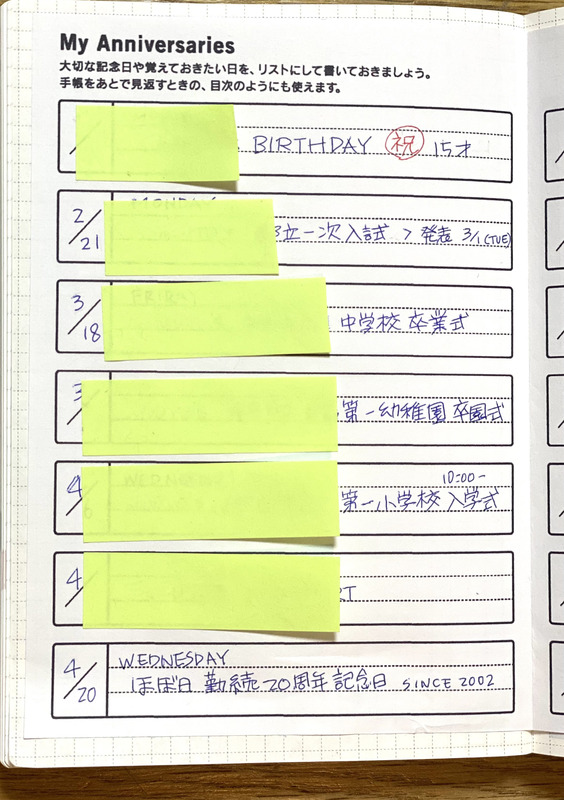 My Anniversaries
大切な記念日や覚えておきたい日を、リストにして書いておきましょう。
手帳をあとで見返すときの、目次のようにも使えます。
BIRTHDAY 祝 15才
2/21
立一次入試 > 発表 3/1(TUE)
3/18
FRIDAY
中学校 卒業式
3/
第一幼稚園 卒園式
4/
WEDNESDAY
10:00-
第一小学校 入学式
4/
4/20
WEDNESDAY
ほぼ日 勤続20周年記念日 SINCE 2002